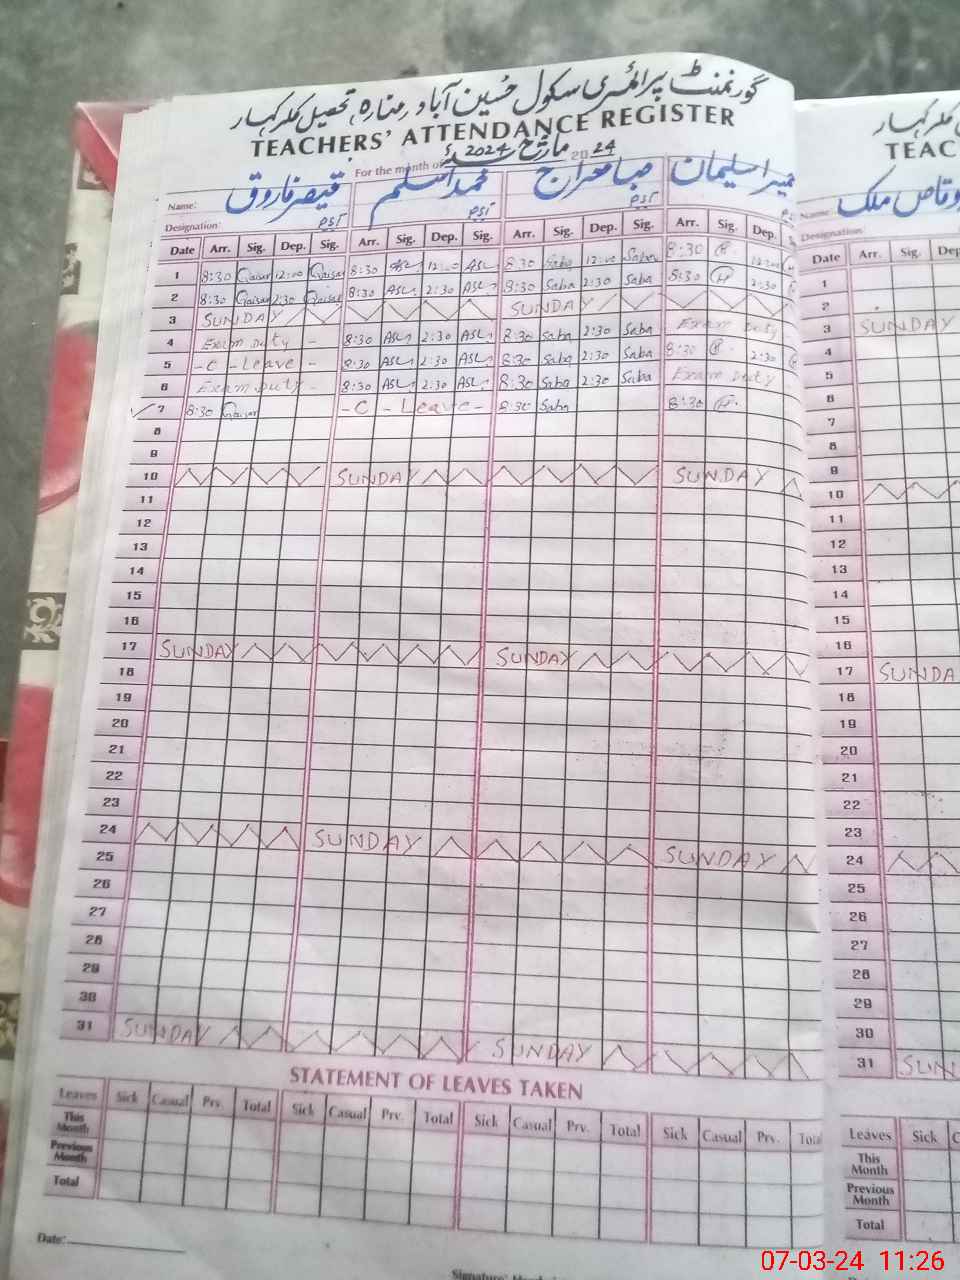 گورنمنٹ پرائمری سکول حسین آباد منارہ تحصیل کلر کہار
TEACHERS' ATTENDANCE REGISTER
For the month of مارچ 2024ء 2024
Name: قیصر فاروق محمد اسلم صبا معراج سلیمان
PST PST PST
Designation:
Date Arr. Sig. Dep. Sig. Arr. Sig. Dep. Sig. Arr. Sig. Dep. Sig. Arr. Sig. Dep.
1 8:30 Qaisar 12:00 Qaisar 8:30 ASL 12:00 ASL 8:30 Saba 12:00 Saba 8:30 12:00
2 8:30 Qaisar 2:30 Qaisar 8:30 ASL 2:30 ASL 8:30 Saba 2:30 Saba 8:30 2:30
3 SUNDAY SUNDAY
4 Exam Duty - 8:30 ASL 2:30 ASL 8:30 Saba 2:30 Saba Exam Duty
5 - C - Leave - 8:30 ASL 2:30 ASL 8:30 Saba 2:30 Saba 8:30 2:30
6 Exam Duty - 8:30 ASL 2:30 ASL 8:30 Saba 2:30 Saba Exam Duty
7 8:30 Qaisar - C - Leave - 8:30 Saba 8:30
8
9
10 SUNDAY SUNDAY
11
12
13
14
15
16
17 SUNDAY SUNDAY
18
19
20
21
22
23
24 SUNDAY SUNDAY
25
26
27
28
29
30
31 SUNDAY SUNDAY
STATEMENT OF LEAVES TAKEN
Leaves Sick Casual Prv. Total Sick Casual Prv. Total Sick Casual Prv. Total Sick Casual Prv.
This Month
Previous Month
Total
Date:
کلر کہار
TEAC
وقاص ملک
Name:
Designation:
Date Arr. Sig. Dep
1
2
3 SUNDAY
4
5
6
7
8
9
10
11
12
13
14
15
16
17 SUNDA
18
19
20
21
22
23
24
25
26
27
28
29
30
31 SUN
Leaves Sick
This Month
Previous Month
Total
07-03-24 11:26